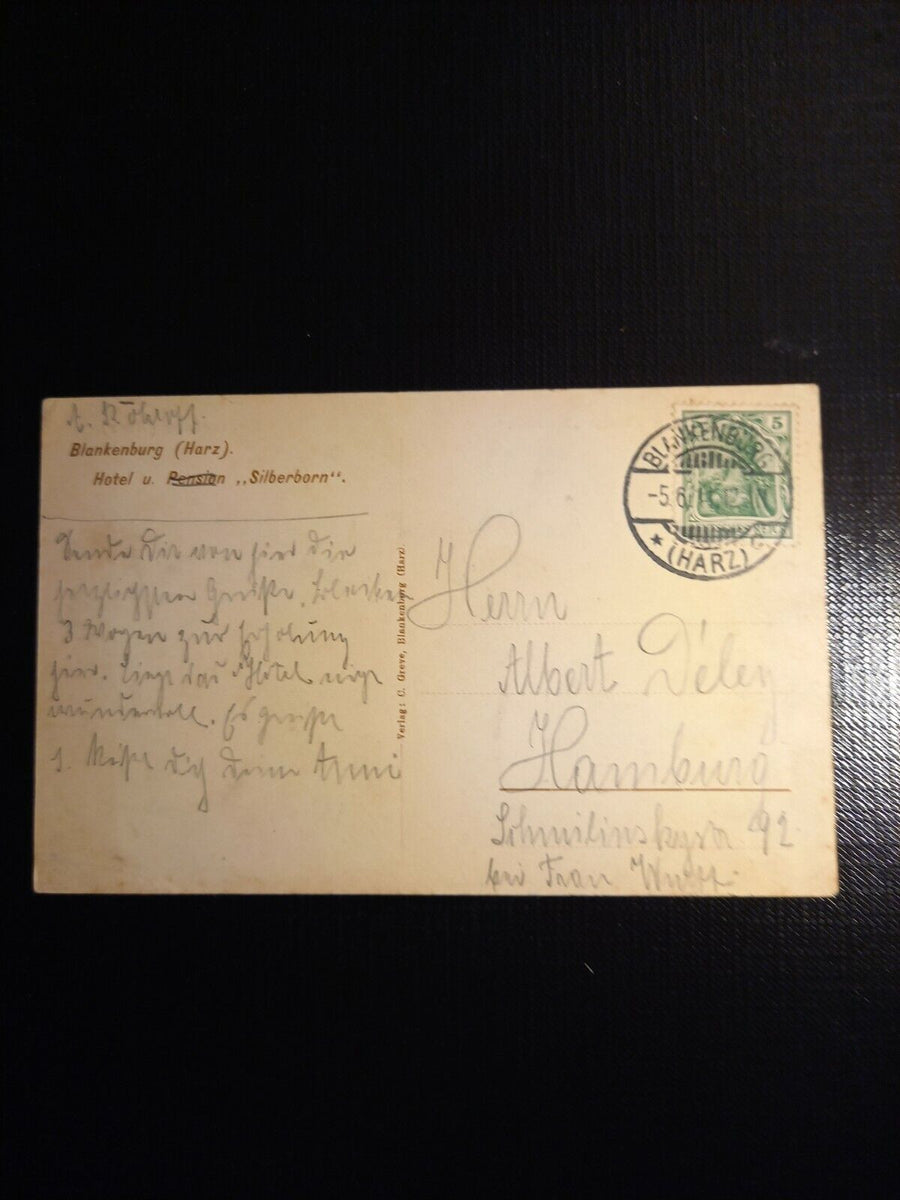 A.
Blankenburg (Harz).
Hotel u. Pension „Silberborn“.
Sende Dir von hier die
herzlichsten Grüße,
3 Wochen zur Erholung
hier. Liegt das Hotel nicht
wundervoll. Es grüßt
u. küßt Dich Deine Anni
Verlag: C. Greve, Blankenburg (Harz)
5
BLANKENBURG
-5.6.
* (HARZ)
Herrn
Albert
Hamburg
Schmilinskystr 92
bei Frau